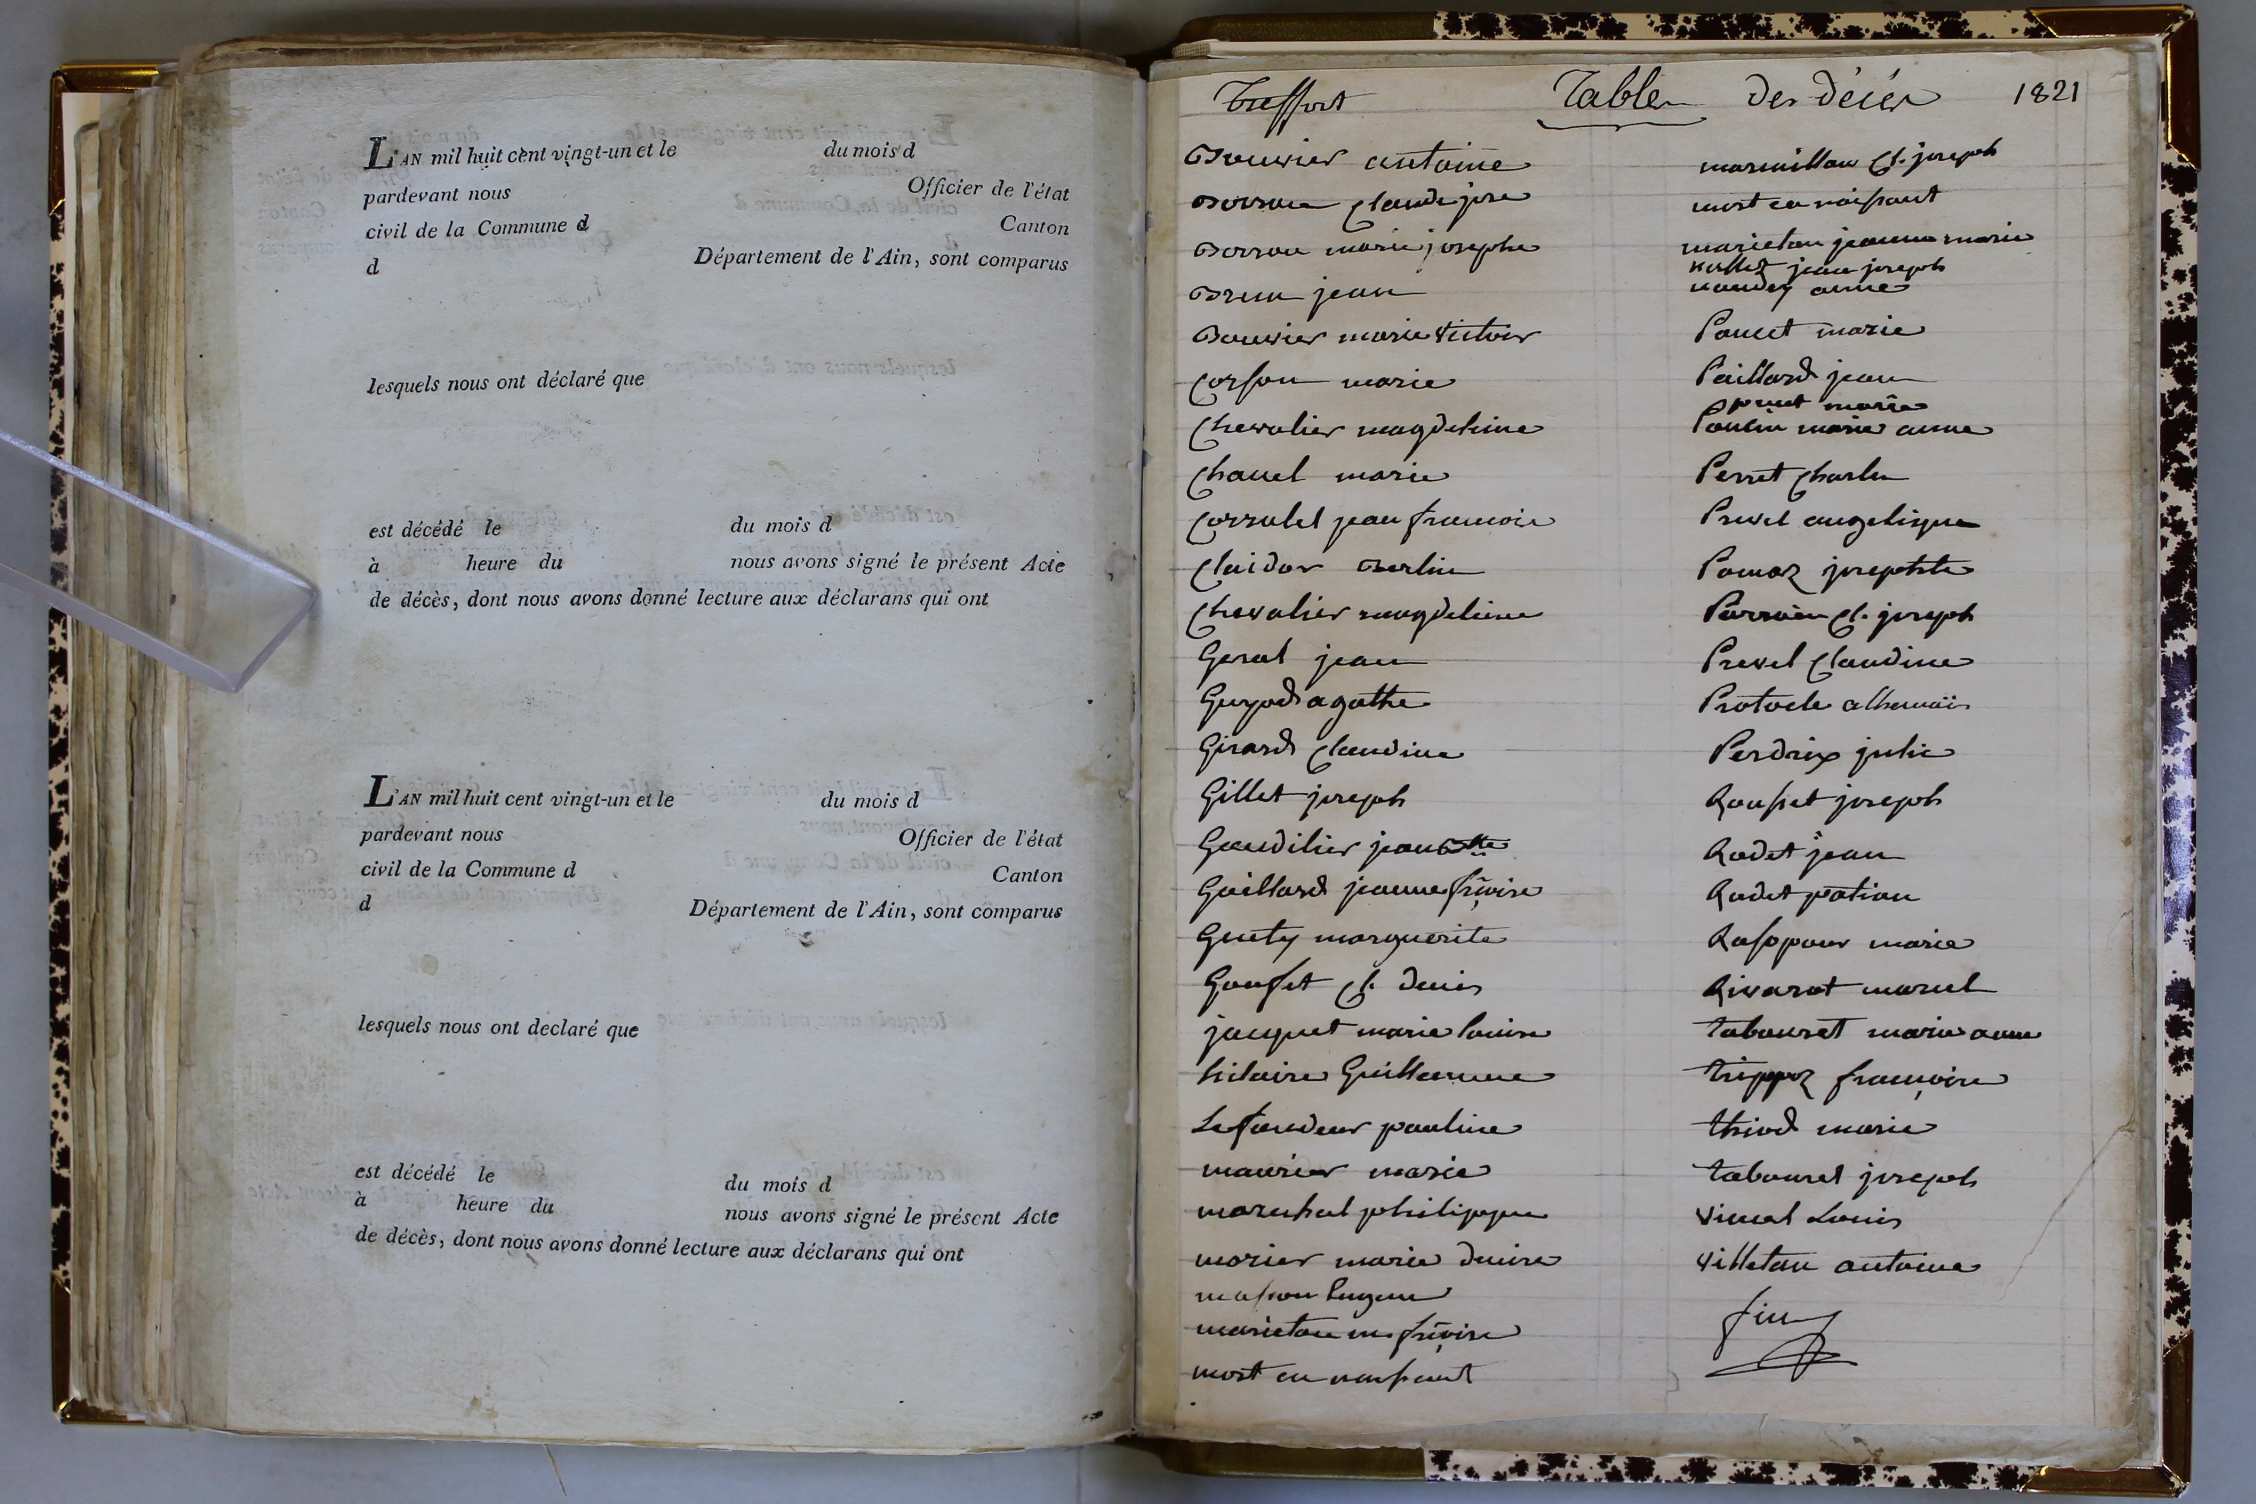 L'AN mil huit cent vingt-un et le du mois d
pardevant nous Officier de l'état
civil de la Commune d Canton
d Département de l'Ain, sont comparus
lesquels nous ont déclaré que
est décédé le du mois d
à heure du nous avons signé le présent Acte
de décès, dont nous avons donné lecture aux déclarans qui ont
L'AN mil huit cent vingt-un et le du mois d
pardevant nous Officier de l'état
civil de la Commune d Canton
d Département de l'Ain, sont comparus
lesquels nous ont declaré que
est décédé le du mois d
à heure du nous avons signé le présent Acte
de décès, dont nous avons donné lecture aux déclarans qui ont
Treffort Table des décés 1821
Bouvier antoine
Borron Claude jose
Borron marie josephe
Brun jean
Bouvier marie victoir
Corson marie
Chevalier magdelaine
Chanel marie
Corralet jean francois
Claidor Berlin
Chevalier magdelaine
Geral jean
Guyod agathe
Girard Claudine
Gillet joseph
Gaudilier jean
Gaillard jeanne frçoise
Genty marguerite
Gousset Cl. denis
jacquet marie louise
hilaire Guillaume
Lefondeur pauline
maurier marie
marechal philippe
morier marie denise
masson Eugene
marieton m. frçoise
mort en naissant
marmillon Cl. joseph
mort en naissant
marieton jeanne marie
nallet jean joseph
naudey anne
Poncet marie
Paillard jean
poncet marie
Poncin marie anne
Perret Charles
Prevel angelique
Pomaz josephte
Perruin Cl. joseph
Prevel Claudine
Protocle
Perdrix julie
Rousset joseph
Radet jean
Radet pation
marie
Rivarat marcel
Tabouret marie anne
Trippoz françoise
thiod marie
Tabouret joseph
Vincal Louis
Villeton antoine
fin